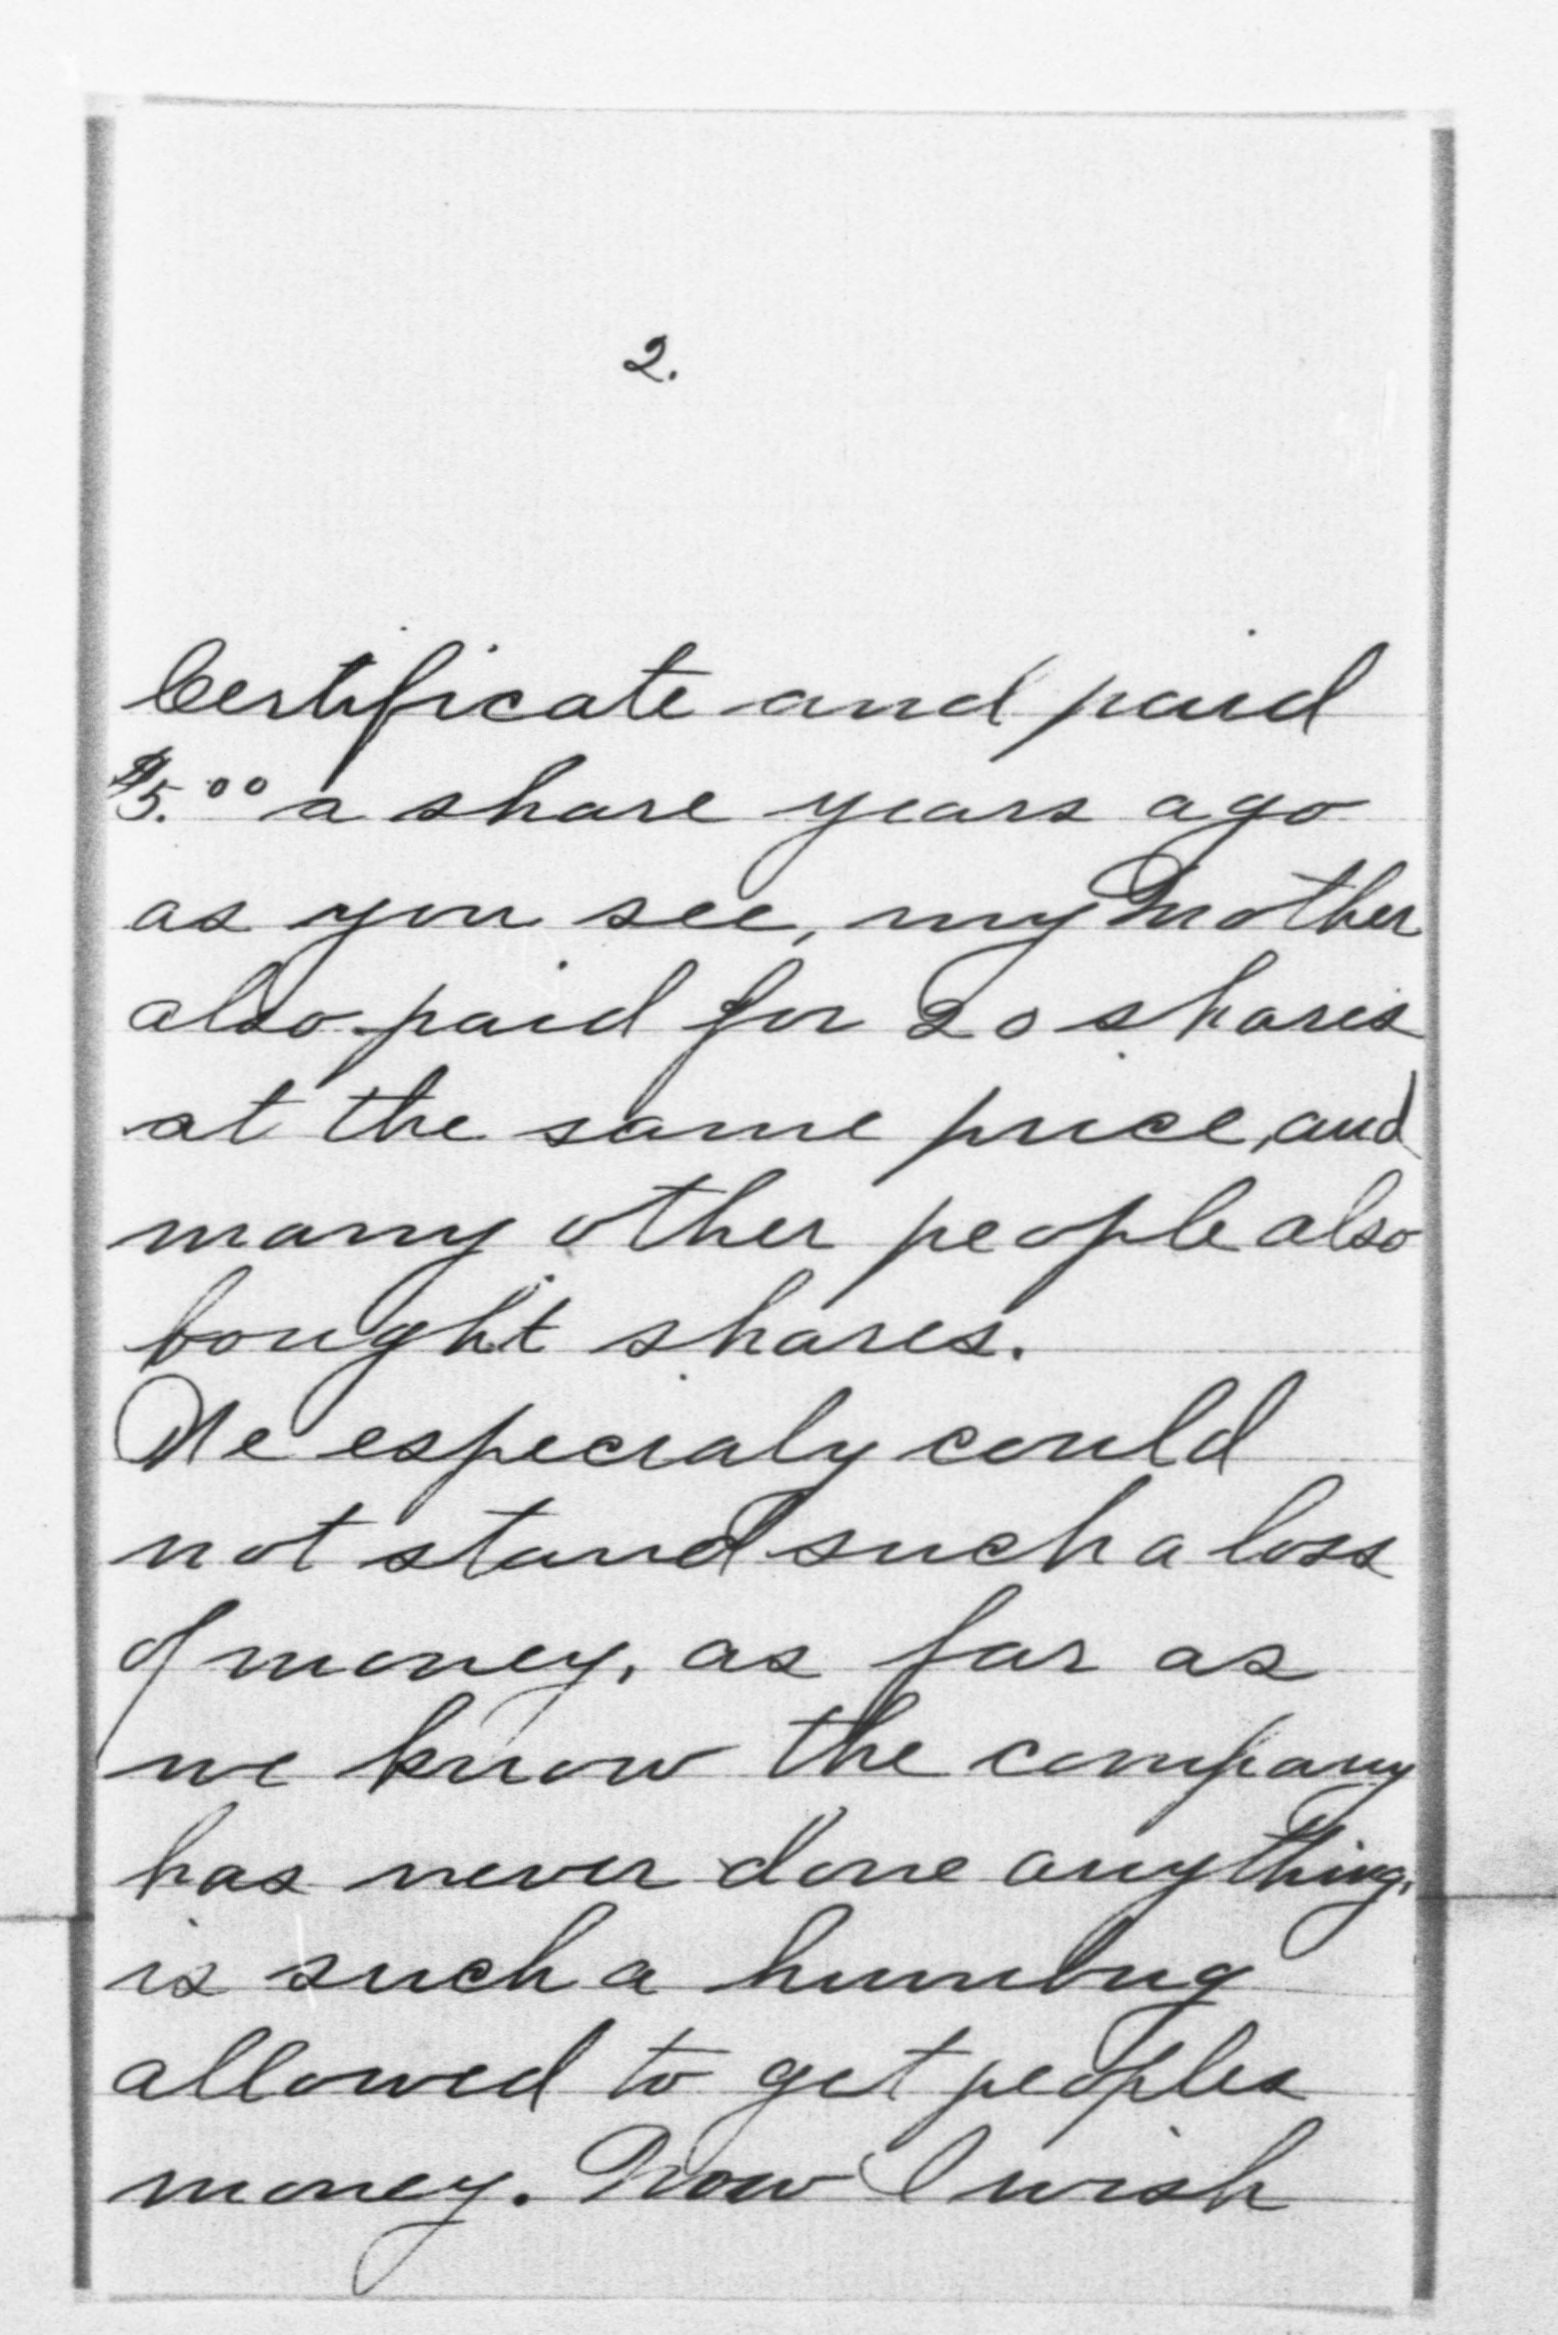 2.
Certificate and paid
$5.00 a share years ago
as you see, my Mother
also paid for 20 shares
at the same price, and
many other people also
bought shares.
We especialy could
not stand such a loss
of money, as far as
we know the company
has never done anything.
is such a humbug
allowed to get peoples
money. Now I wish